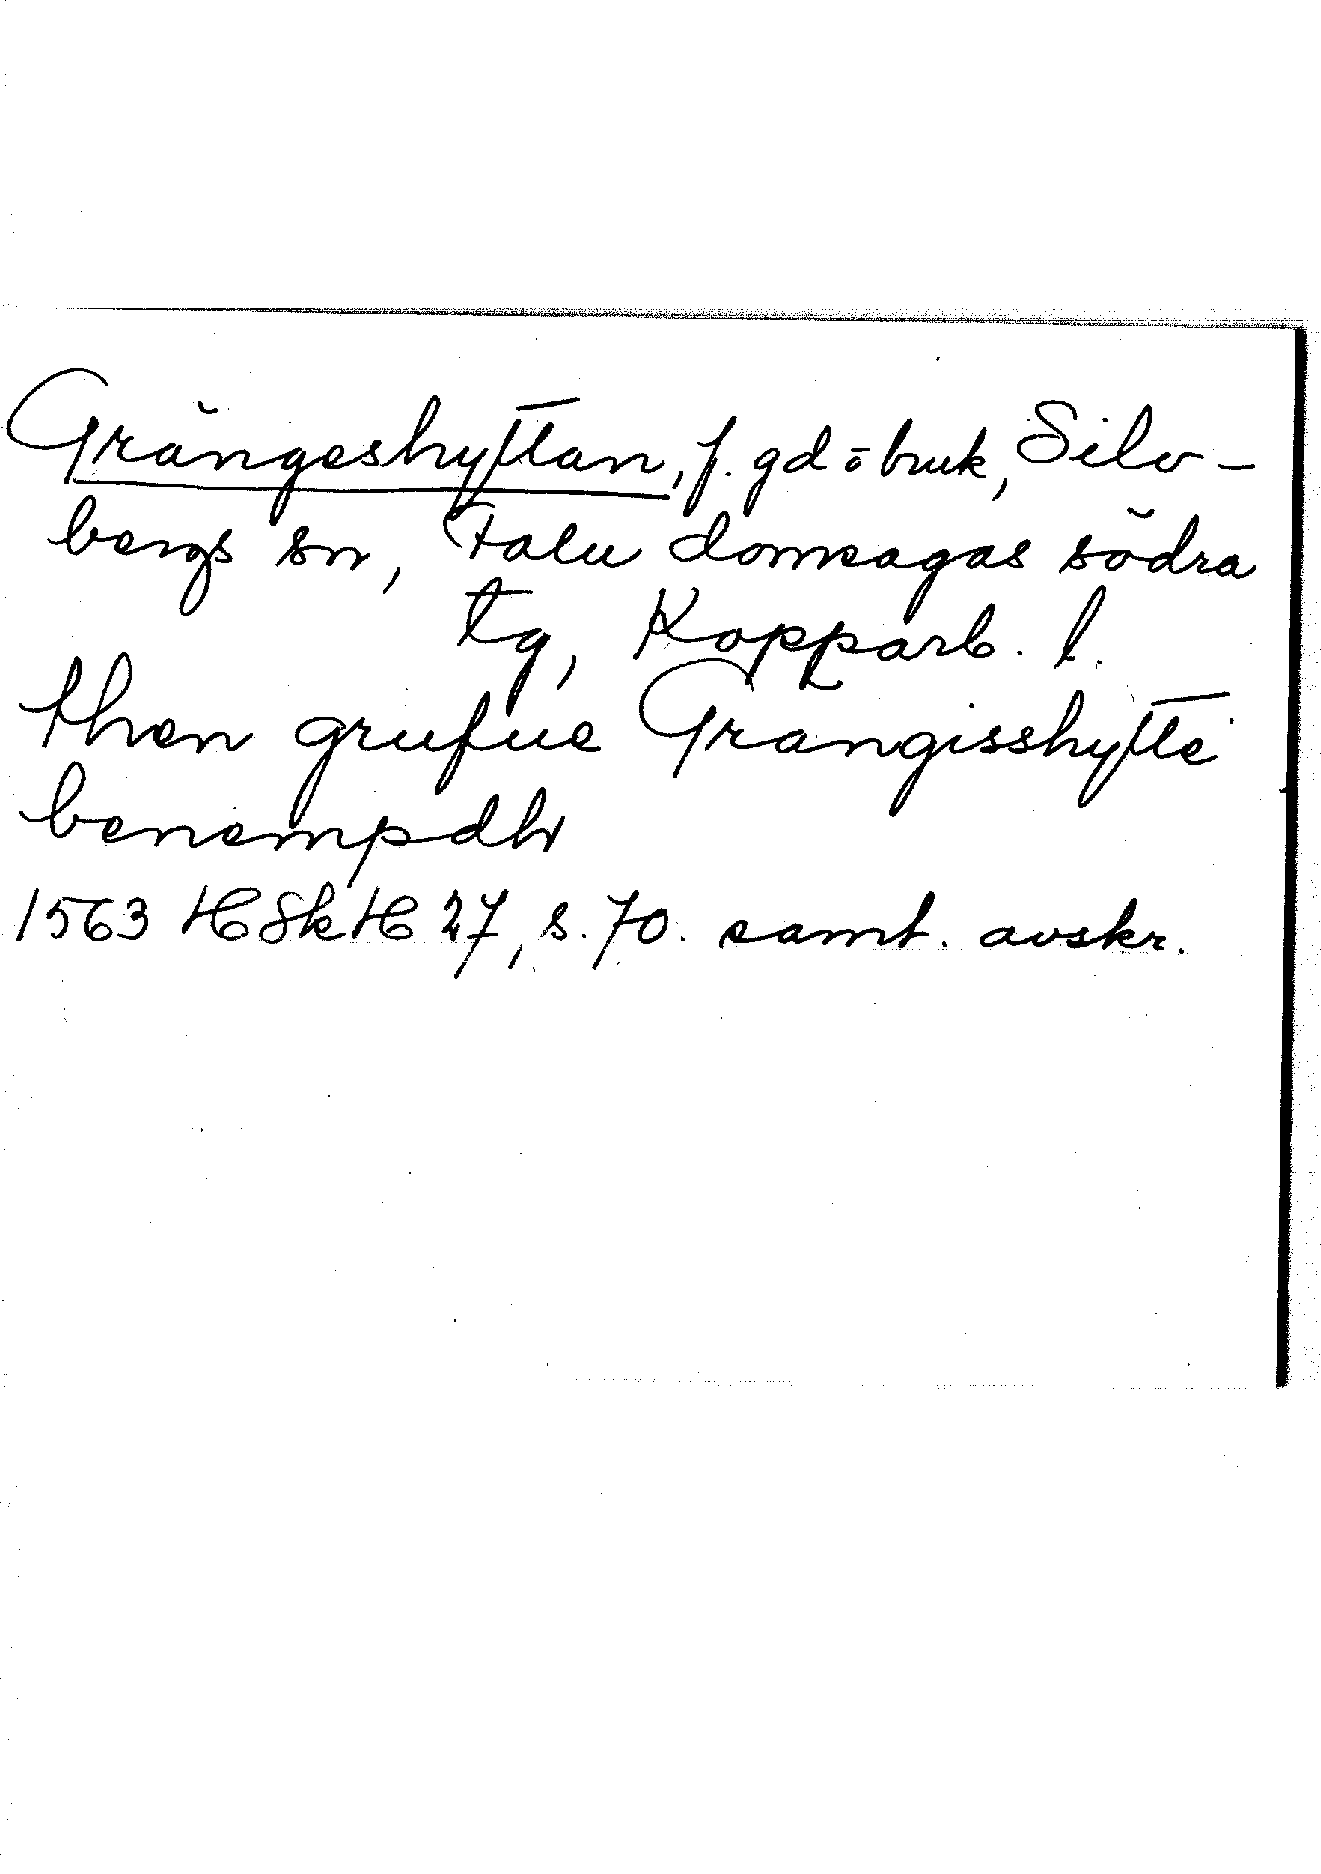 Grängeshyttan, f. gd o bruk, Silv-
bergs sn, Falu domsagas södra
tg, Kopparb. l.
then grufue Grangisshytte
benempdh
1563 HSkH 27, s. 70. samt. avskr.